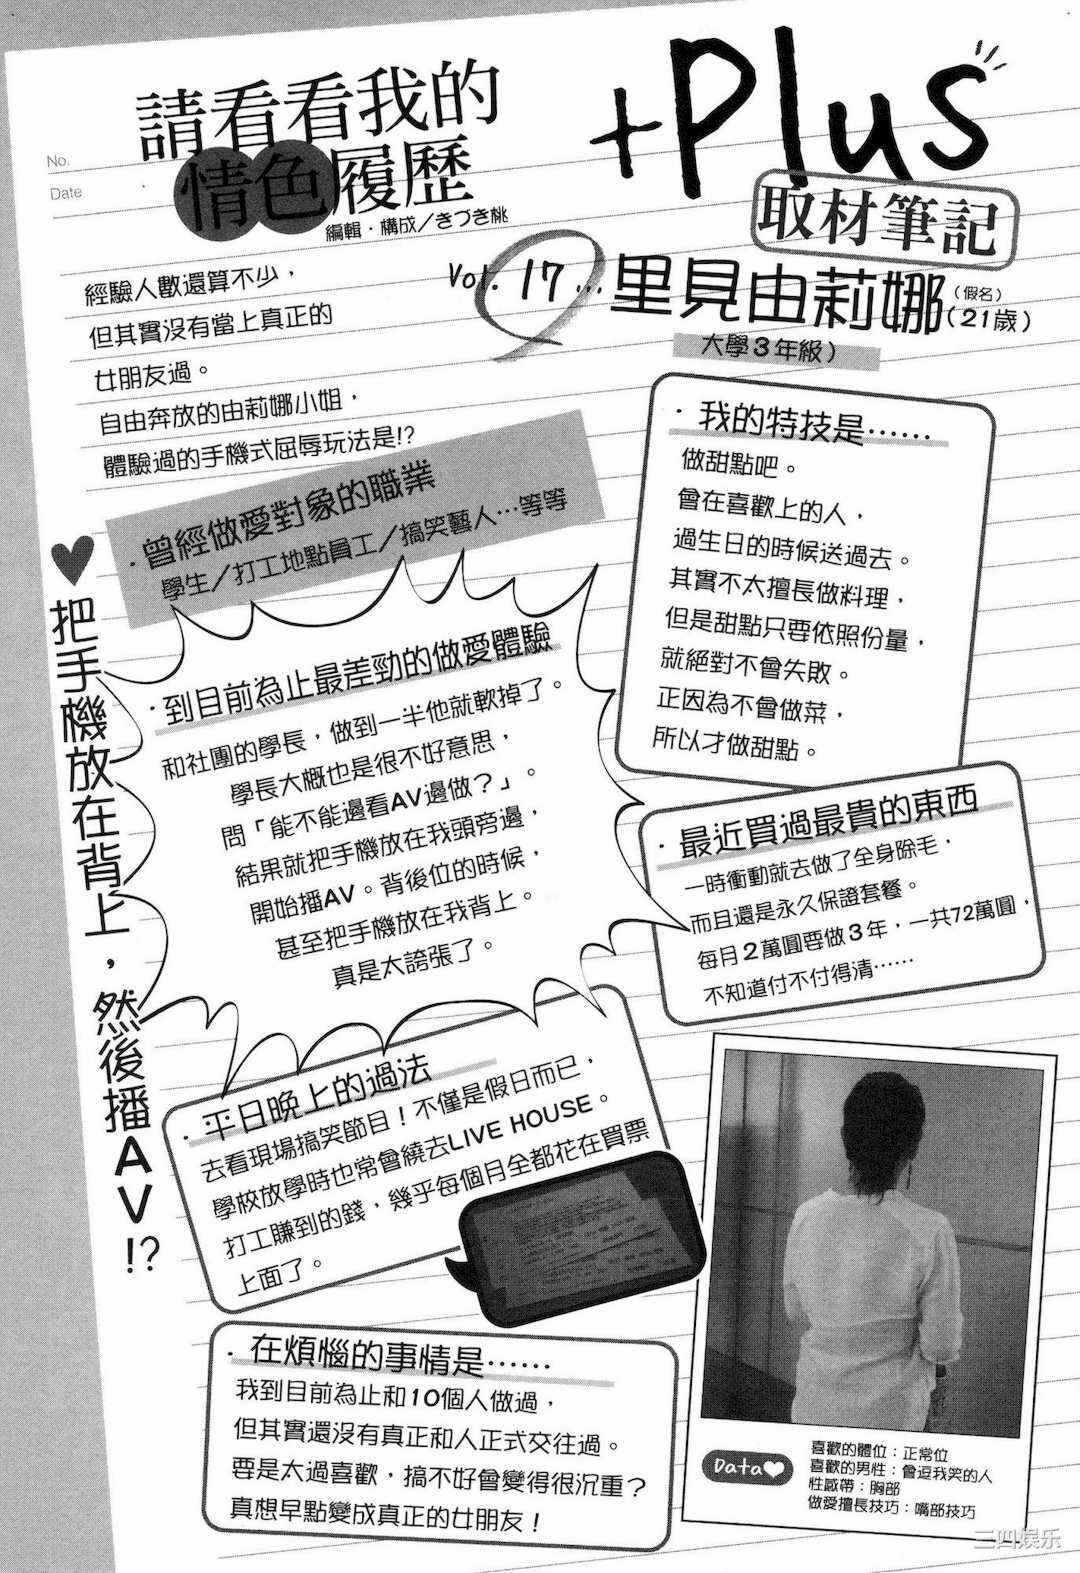 No.
Date
請看看我的
情色履歷
編輯・構成／きづき桃
+Plus
取材筆記
Vol. 17…
里見由莉娜
(假名)
(21歲)
大學3年級)
經驗人數還算不少，
但其實沒有當上真正的
女朋友過。
自由奔放的由莉娜小姐，
體驗過的手機式屈辱玩法是!?
・曾經做愛對象的職業
學生／打工地點員工／搞笑藝人…等等
♥把手機放在背上，然後播AV!?
・到目前為止最差勁的做愛體驗
和社團的學長，做到一半他就軟掉了。
學長大概也是很不好意思，
問「能不能邊看AV邊做？」。
結果就把手機放在我頭旁邊，
開始播AV。背後位的時候，
甚至把手機放在我背上。
真是太誇張了。
・我的特技是……
做甜點吧。
曾在喜歡上的人，
過生日的時候送過去。
其實不太擅長做料理，
但是甜點只要依照份量，
就絕對不會失敗。
正因為不會做菜，
所以才做甜點。
・最近買過最貴的東西
一時衝動就去做了全身除毛，
而且還是永久保證套餐。
每月2萬圓要做3年，一共72萬圓，
不知道付不付得清……
・平日晚上的過法
去看現場搞笑節目！不僅是假日而已，
學校放學時也常會繞去LIVE HOUSE。
打工賺到的錢，幾乎每個月全都花在買票
上面了。
・在煩惱的事情是……
我到目前為止和10個人做過，
但其實還沒有真正和人正式交往過。
要是太過喜歡，搞不好會變得很沉重？
真想早點變成真正的女朋友！
Data♥
喜歡的體位：正常位
喜歡的男性：會逗我笑的人
性感帶：胸部
做愛擅長技巧：嘴部技巧
三四娱乐